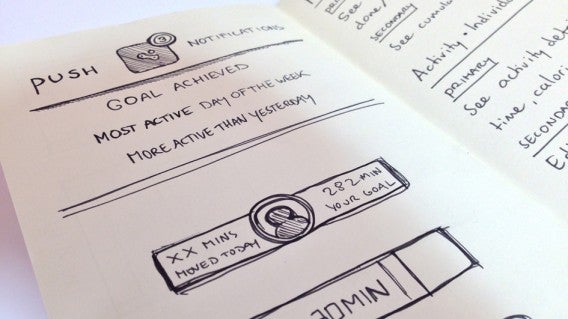 PUSH NOTIFICATIONS
GOAL ACHIEVED
MOST ACTIVE DAY OF THE WEEK
MORE ACTIVE THAN YESTERDAY
XX MINS
MOVED TODAY
282 MIN
YOUR GOAL
ADMIN
See
done/
SECONDARY
See cumul
Activity • Individ
PRIMARY
See activity det
time, calori
SECON
Ed